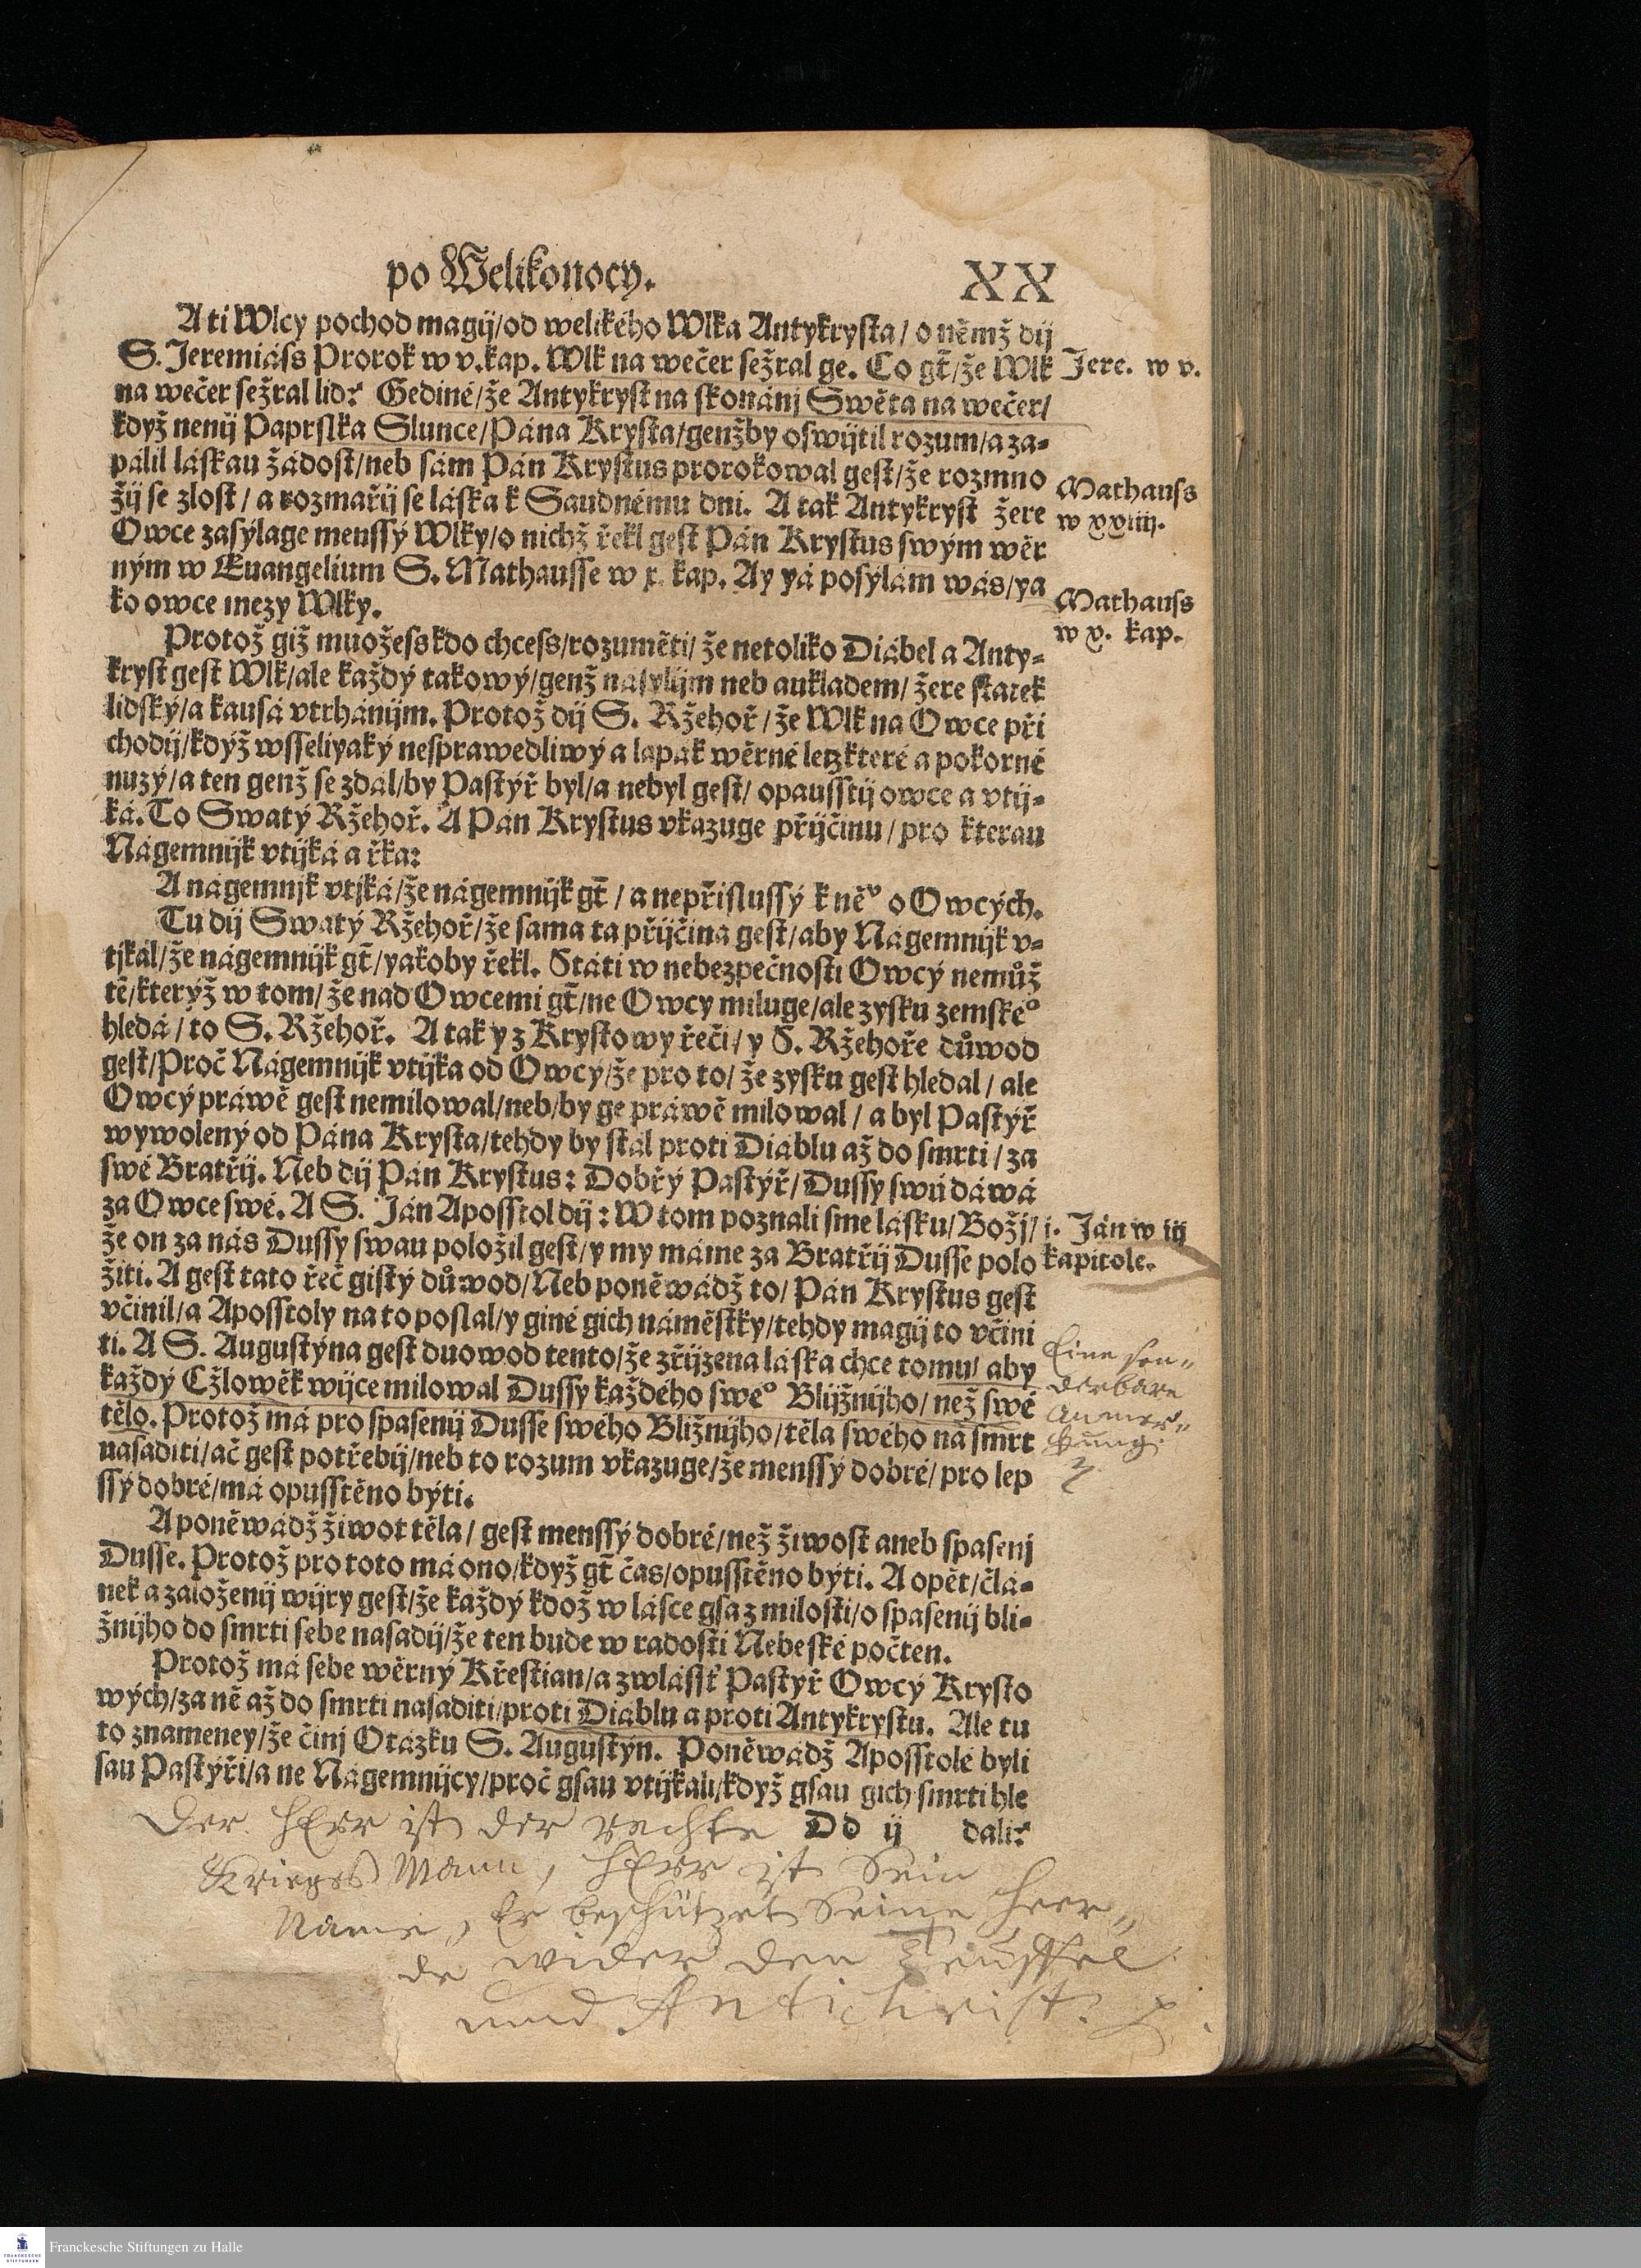 po Welikonocy. XX
A ti Wlcy pochod magij/od welikého Wlka Antykrysta/o němž dij
S. Jeremiáss Prorok w v.kap. Wlk na wečer sežral ge. Co gt̃/že Wlk
Jere. w v.
na wečer sežral lid? Gediné/že Antykryst na skonánj Swěta na wečer/
když nenij Paprslka Slunce/Pána Krysta/genžby oswijtil rozum/a za-
pálil láskau žádost/neb sám Pán Krystus prorokowal gest/že rozmno
Mathauss
žij se zlost/a rozmařij se láska k Saudnému dni. A tak Antykryst žere
w xxiiij.
Owce zasýlage menssý Wlky/o nichž řekl gest Pán Krystus swým wěr
ným w Euangelium S. Mathausse w x. kap. Ay yá posýlám wás/ya
Mathauss
ko owce mezy Wlky.
w x. kap.
Protož giž muožess kdo chcess/rozuměti/že netoliko Diábel a Anty-
kryst gest Wlk/ale každý takowý/genž násylijm neb aukladem/žere statek
lidský/a kausá vtrhánijm. Protož dij S. Ržehoř/že Wlk na Owce při
chodij/když wsseliyaký nesprawedliwý a lapák wěrné letzkteré a pokorné
nuzý/a ten genž se zdál/by Pastýř byl/a nebyl gest/opausstij owce a vtij-
ká. To Swatý Ržehoř. A Pán Krystus vkazuge přijčinu/pro kterau
Nágemnijk vtijká a řka:
A nágemnjk vtjká/že nágemnijk gt̃/a nepřislussý k něº o Owcých.
Tu dij Swatý Ržehoř/že sama ta přijčina gest/aby Nágemnijk v-
tjkal/že nágemnijk gt̃/yakoby řekl. Státi w nebezpečnosti Owcý nemůž
tě/kterýž w tom/že nad Owcemi gt̃/ne Owcy miluge/ale zysku zemskéº
hledá/to S. Ržehoř. A tak y z Krystowy řeči/y S. Ržehoře důwod
gest/Proč Nágemnijk vtijka od Owcý/že pro to/že zysku gest hledal/ale
Owcý práwě gest nemilowal/neb/by ge práwě milowal/a byl Pastýř
wywolený od Pána Krysta/tehdy by stál proti Diáblu až do smrti/za
swé Bratřij. Neb dij Pán Krystus: Dobrý Pastýř/Dussy swú dáwá
za Owce swé. A S. Ján Aposstol dij: W tom poznali sme lásku/Božj/
i. Ján w iij
že on za nás Dussy swau položil gest/y my máme za Bratřij Dusse polo
kapitole.
žiti. A gest tato řeč gistý důwod/Neb poněwádž to/Pán Krystus gest
včinil/a Aposstoly na to poslal/y giné gich náměstky/tehdy magij to včini
ti. A S. Augustýna gest duowod tento/že zřijzena láska chce tomu/aby
Eine son-
každý Cžlowěk wijce milowal Dussy každého sweº Blijžnijho/než swé
derbare
tělo. Protož má pro spasenij Dusse swého Bližnijho/těla swého na smrt
Anmer-
nasaditi/ač gest potřebij/neb to rozum vkazuge/že menssý dobré/pro lep
kung.
ssý dobré/má opusstěno býti.
A poněwádž žiwot těla/gest menssý dobré/než žiwost aneb spasenj
Dusse. Protož pro toto má ono/když gt̃ čas/opusstěno býti. A opět/člá-
nek a založenij wijry gest/že každý kdož w lásce gsa z milosti/o spasenij bli-
žnijho do smrti sebe nasadij/že ten bude w radosti Nebeské počten.
Protož má sebe wěrný Křestian/a zwlásst Pastýř Owcý Krysto
wých/za ně až do smrti nasaditi/proti Diáblu a proti Antykrystu. Ale tu
to znameney/že činj Otázku S. Augustýn. Poněwádž Aposstolé byli
sau Pastýři/a ne Nágemnijcy/proč gsau vtijkali/když gsau gich smrti hle
Dd ij dali?
Der HErr ist der rechte
Krieges Mann, HErr ist Sein
Name, Er beschützet Seine Heer-
de wider den Teuffel
und Antichrist.